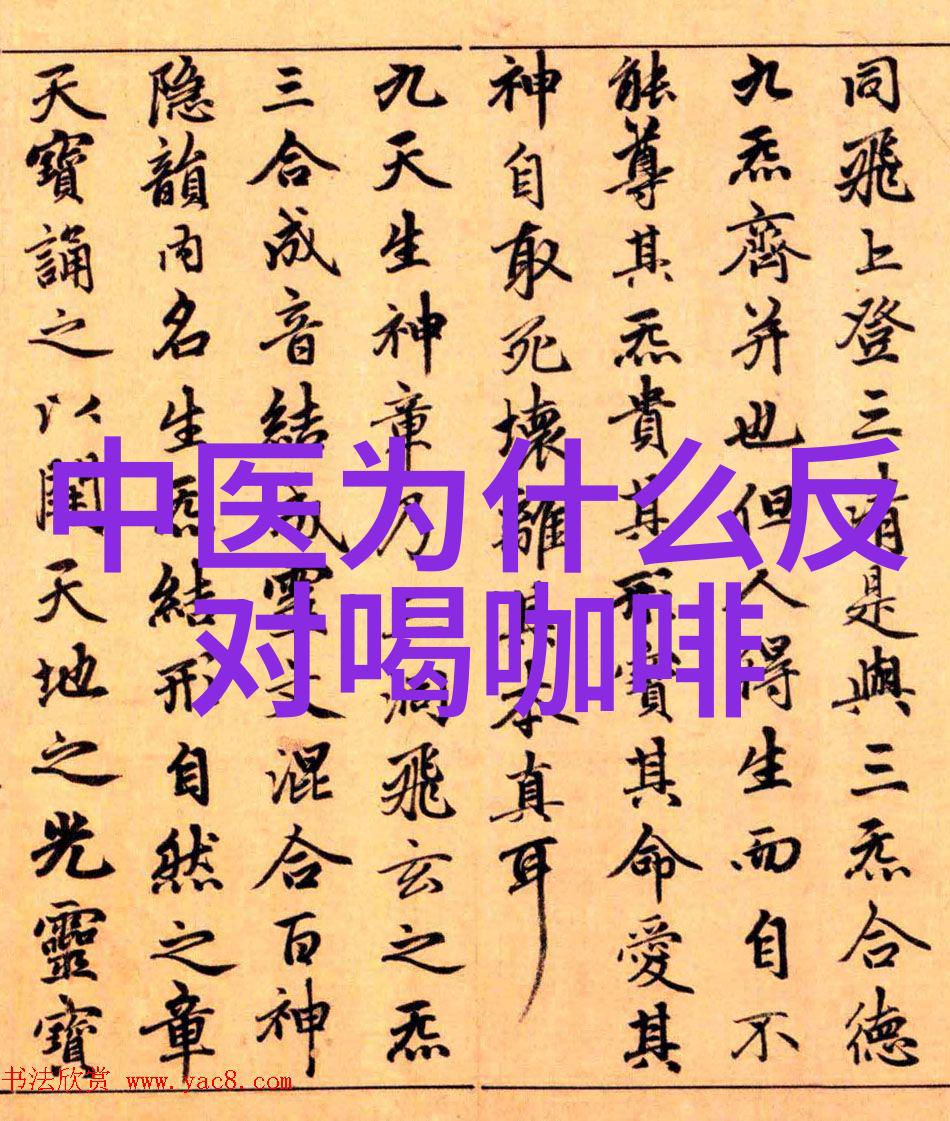 同飛上登三清是與三炁合德
九炁齊并也但人得生而自不
能尊其炁貴其形寶其命愛其
神自取死壞離其本真耳
九天生神章乃三洞飛玄之炁
三合成音結成靈文混合百神
隐韻内名生炁結形自然之章
天寶誦之以開天地之光靈寶
中医为什么反
对喝咖啡
书法欣赏 www.yac8.com